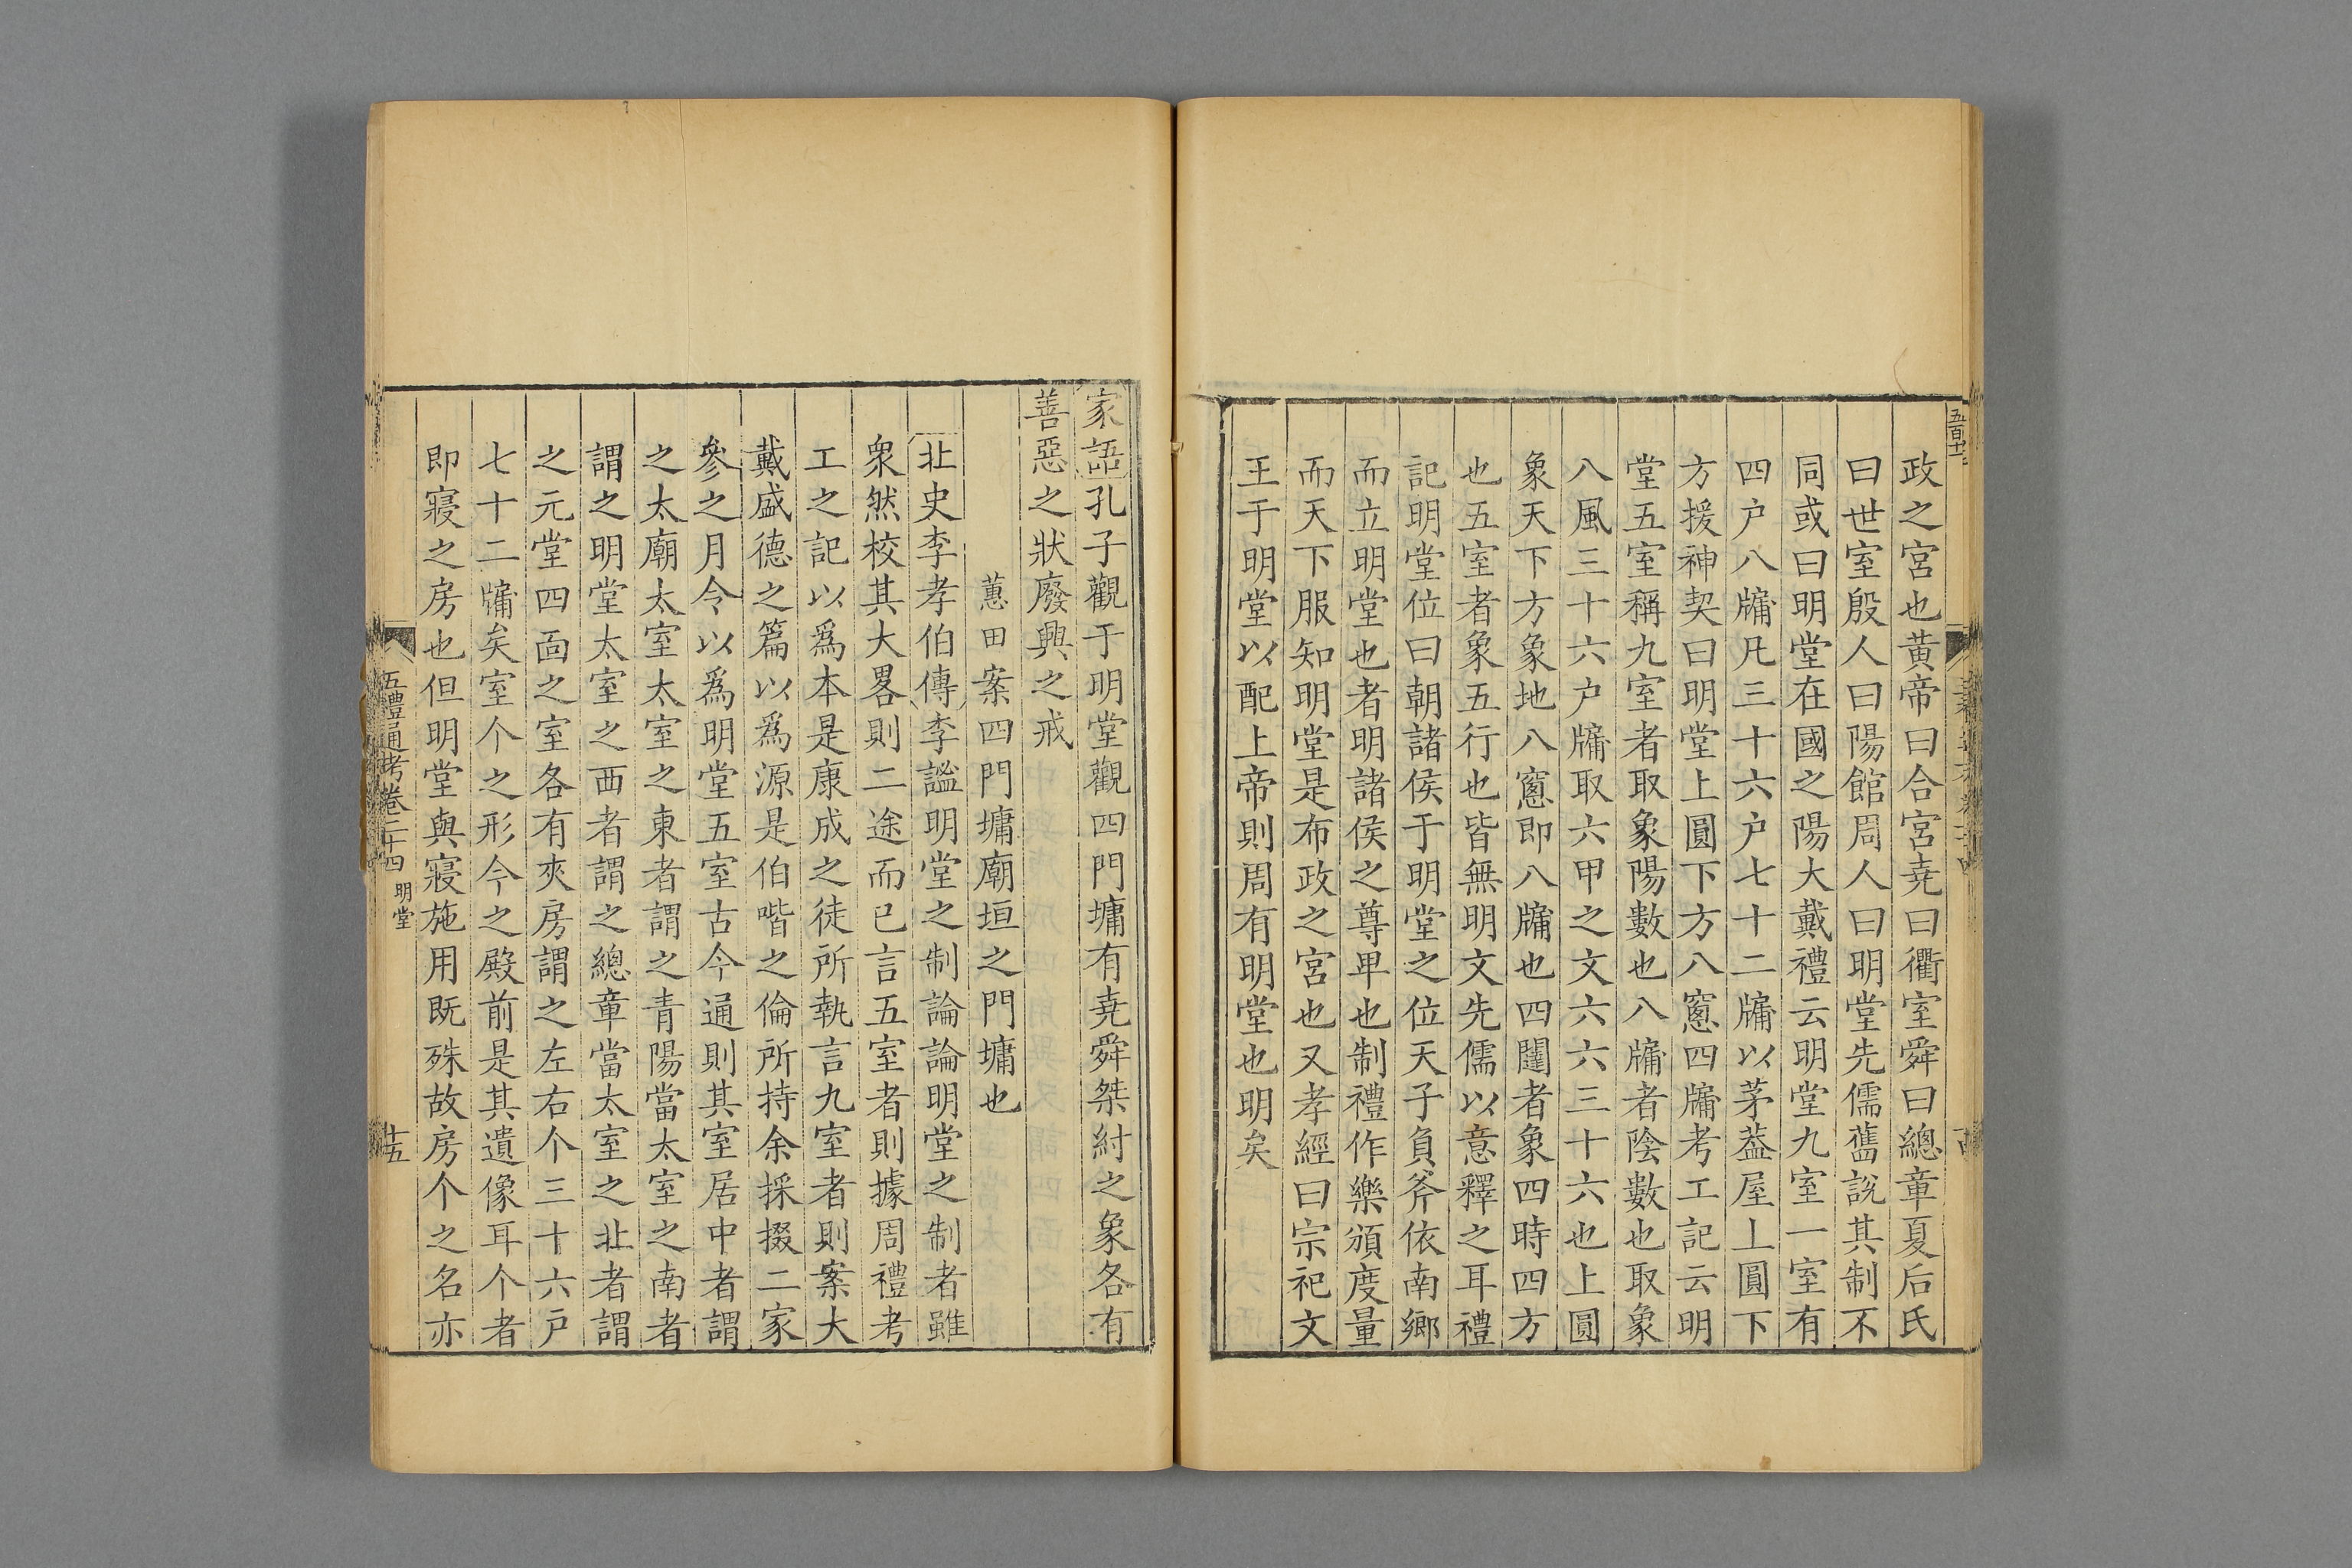 政之宮也黃帝曰合宮堯曰衢室舜曰總章夏后氏
曰世室殷人曰陽館周人曰明堂先儒舊說其制不
同或曰明堂在國之陽大戴禮云明堂九室一室有
四户八牖凡三十六户七十二牖以茅葢屋上圓下
方援神契曰明堂上圓下方八窻四牖考工記云明
堂五室稱九室者取象陽數也八牖者陰數也取象
八風三十六户牖取六甲之文六六三十六也上圓
象天下方象地八窻即八牖也四闥者象四時四方
也五室者象五行也皆無明文先儒以意釋之耳禮
記明堂位曰朝諸侯于明堂之位天子負斧依南鄉
而立明堂也者明諸侯之尊卑也制禮作樂頒度量
而天下服知明堂是布政之宮也又孝經曰宗祀文
王于明堂以配上帝則周有明堂也明矣
家語孔子觀于明堂觀四門墉有堯舜桀紂之象各有
善惡之狀廢興之戒
蕙田案四門墉廟垣之門墉也
北史李孝伯傳李謐明堂之制論論明堂之制者雖
衆然校其大畧則二途而已言五室者則據周禮考
工之記以爲本是康成之徒所執言九室者則案大
戴盛德之篇以爲源是伯喈之倫所持余採掇二家
參之月令以爲明堂五室古今通則其室居中者謂
之太廟太室太室之東者謂之青陽當太室之南者
謂之明堂太室之西者謂之總章當太室之北者謂
之元堂四面之室各有夾房謂之左右个三十六户
七十二牖矣室个之形今之殿前是其遺像耳个者
即寢之房也但明堂與寢施用既殊故房个之名亦
五禮通考卷二十四 明堂 十五